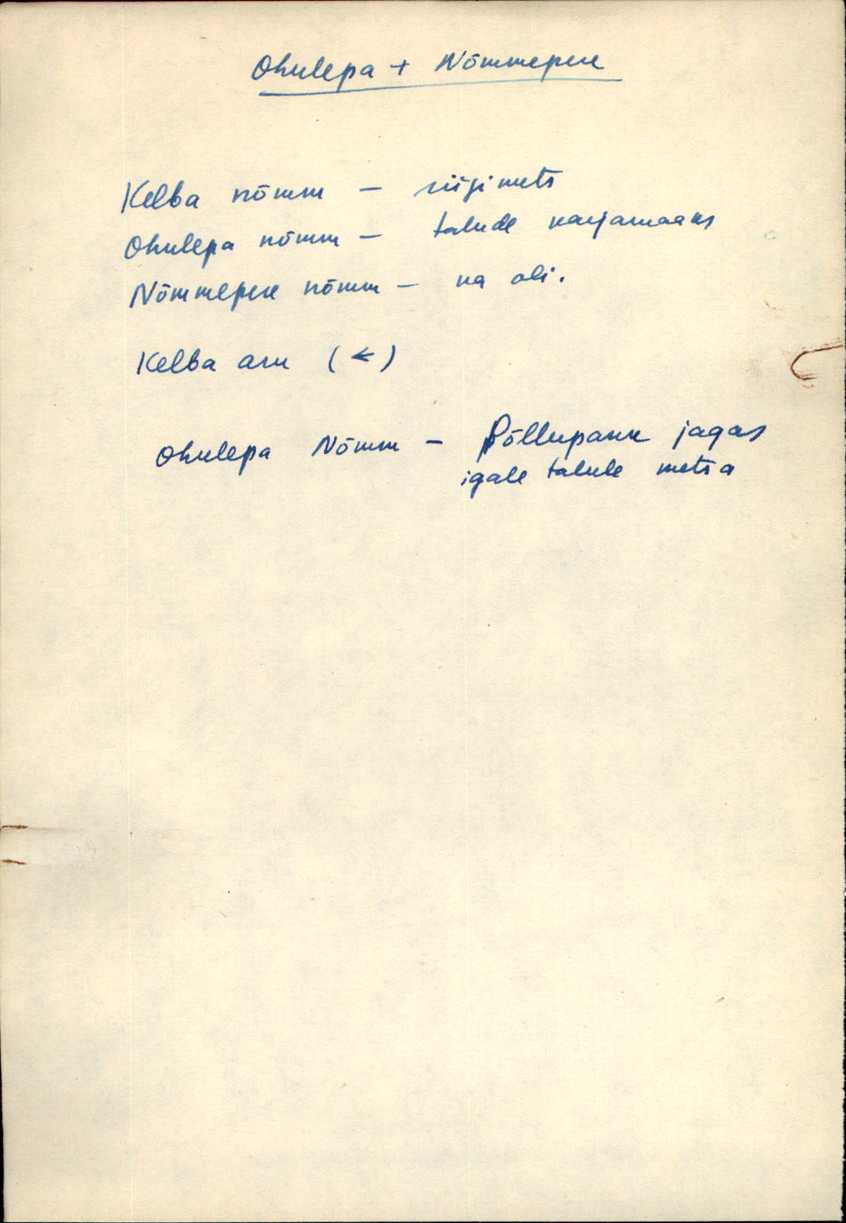 Ohulepa + Nõmmepere
Kelba nõmm – riigimets
Ohulepa nõmm – talude karjamaaks
Nõmmepere nõmm – ka oli.
Kelba aru (←)
Ohulepa Nõmm – Põllupank jagas
igale talule metsa